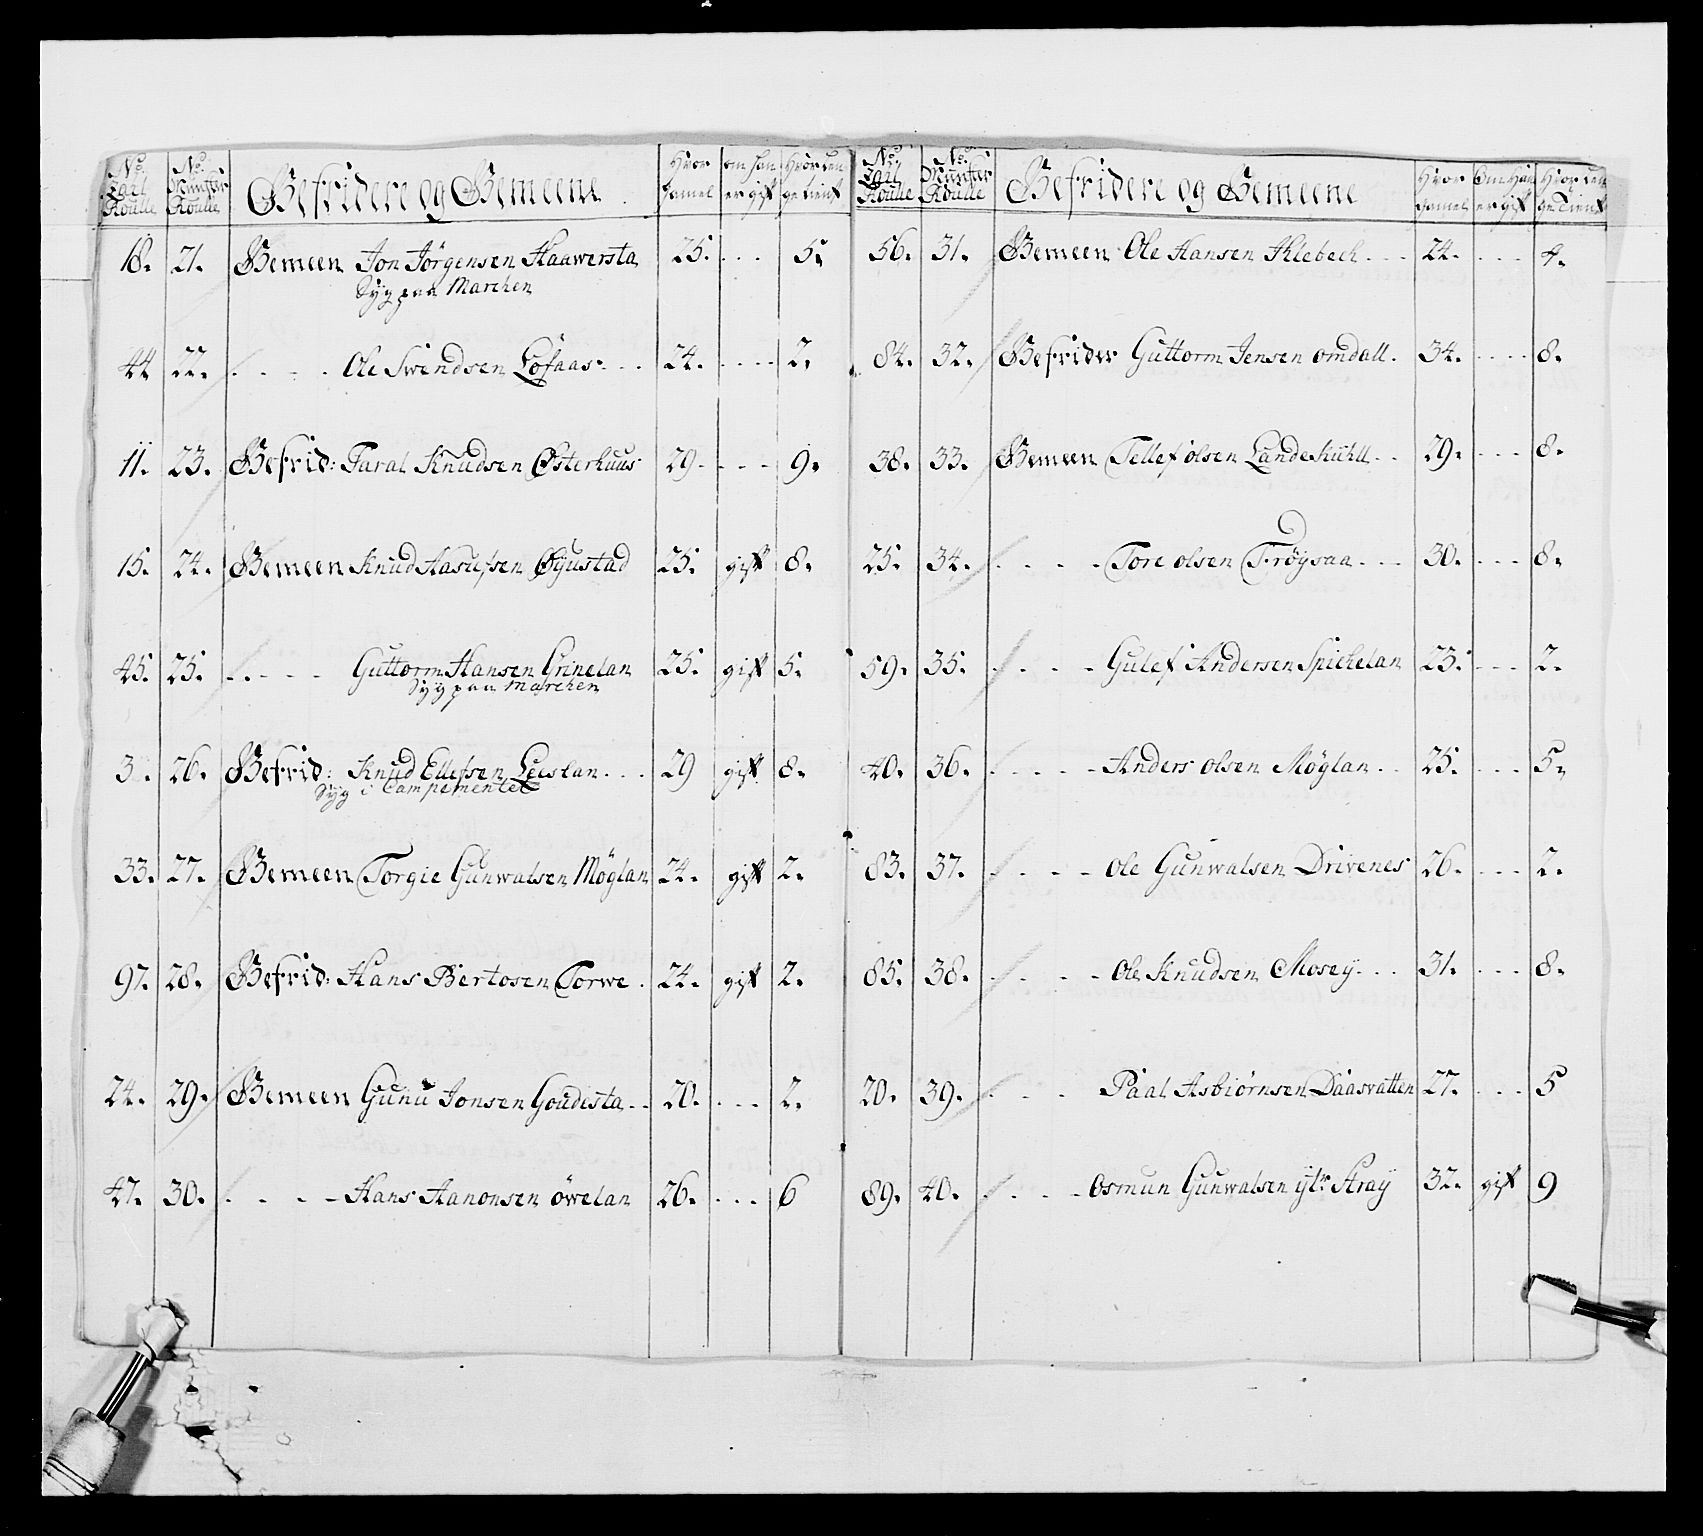 No: Zall Roulle | No: Munster Roulle | Befridere og Gemeene | Hvor gamel | om han er gift | Hvor len ge tient
18. | 21. | Gemeen Jon Jörgensen Haawersta | 25. | ... | 5.
Syg paa Marchen
44 | 22. | .... Ole Swendsen Löfaas... | 24. | .... | 2.
11. | 23. | Befrid: Taral Knudsen Østerhuus | 29. | ... | 9.
15. | 24. | Gemeen Knud Aasulfsen Øyustad | 25. | gift | 8.
45. | 25. | ..... Guttorm Hansen Grinelan | 25. | gift | 5.
Syg paa Marchen
3. | 26. | Befrid: Knud Ellefsen Leeslan... | 29 | gift | 8.
Syg i Campementet
33. | 27. | Gemeen Torgie Gunwalsen Möglan | 24. | gift | 2.
97. | 28. | Befrid: Hans Bertosen Torwe. | 24. | gift | 2.
24. | 29. | Gemeen Gunu Jonsen Goudesta.. | 20. | ... | 2.
47. | 30. | .... Hans Aanonsen öwelan | 26. | ... | 6
No: Zall Roulle | No: Munster Roulle | Befridere og Gemeene | Hvor gamel | Om Han er gift | Hvor len ge Tient
56. | 31. | Gemeen Ole Hansen Klebech... | 24. | ... | 4.
84. | 32. | Befrider Guttorm Jensen omdall. | 34. | .... | 8.
38. | 33. | Gemeen Tellef olsen Landekiihll.. | 29. | ... | 8.
25. | 34. | .... Tore olsen Frøysaa... | 30. | ... | 8.
59. | 35. | .... Gulef Andersen Spickelan | 23. | ... | 2.
40. | 36. | ..... Anders olsen Möglan.. | 25. | ... | 5.
83. | 37. | .... Ole Gunwalsen Drivenes | 26. | ... | 2.
85. | 38. | .... Ole Knudsen Mosey... | 31. | ... | 8.
20. | 39. | ... Paal Asbiörnsen Daasvatten | 27. | ... | 5
89. | 40. | .... Osmun Gunwalsen ytr Stray | 32. | gift | 9